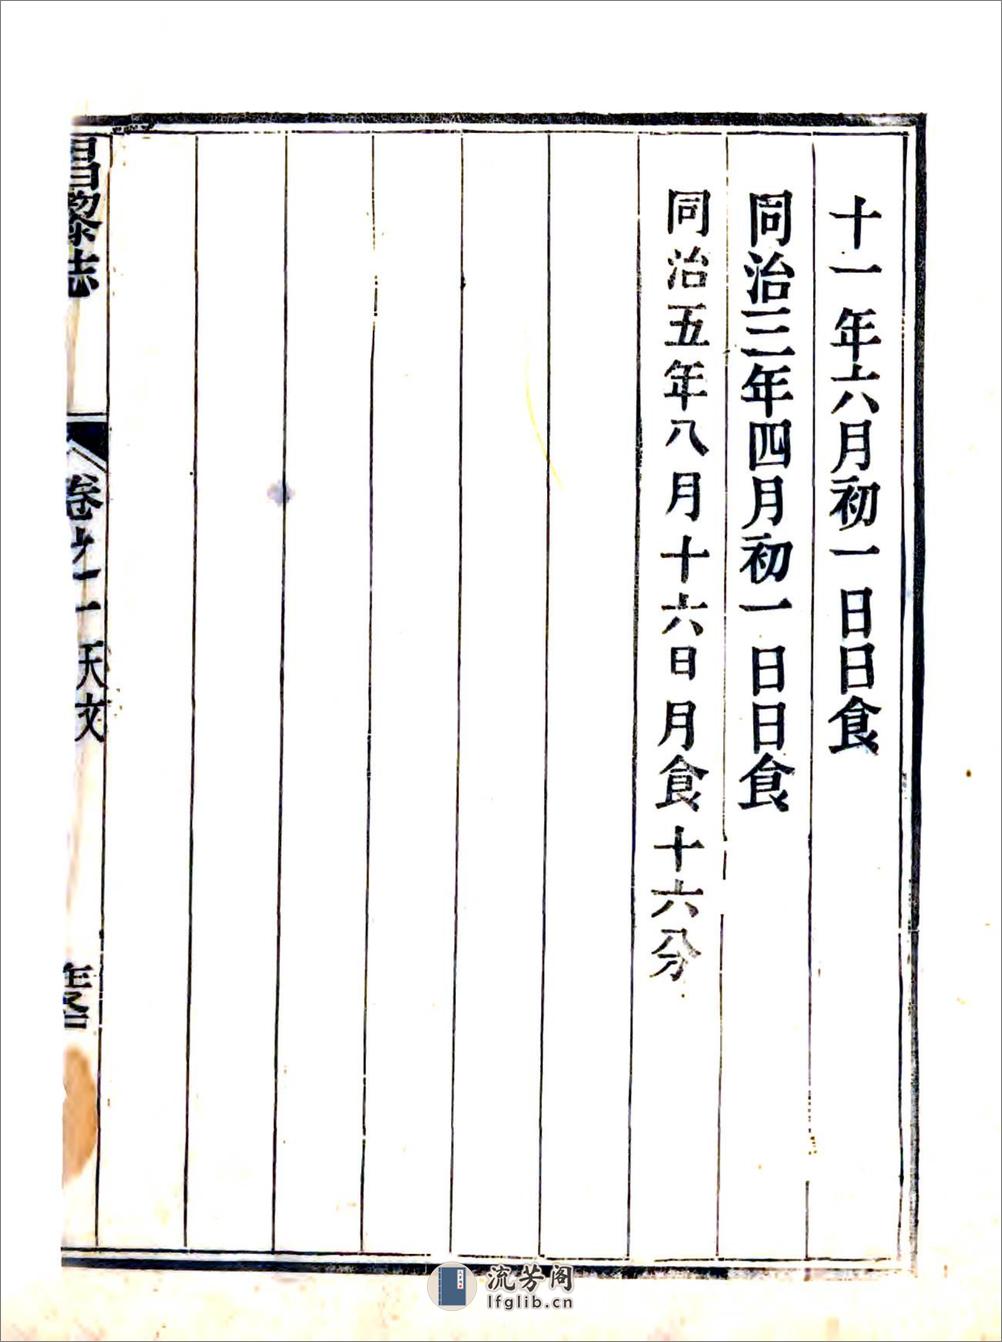 十一年六月初一日日食
同治三年四月初一日日食
同治五年八月十六日月食十六分
昌黎志
卷之一 天文
流芳阁
lfglib.cn